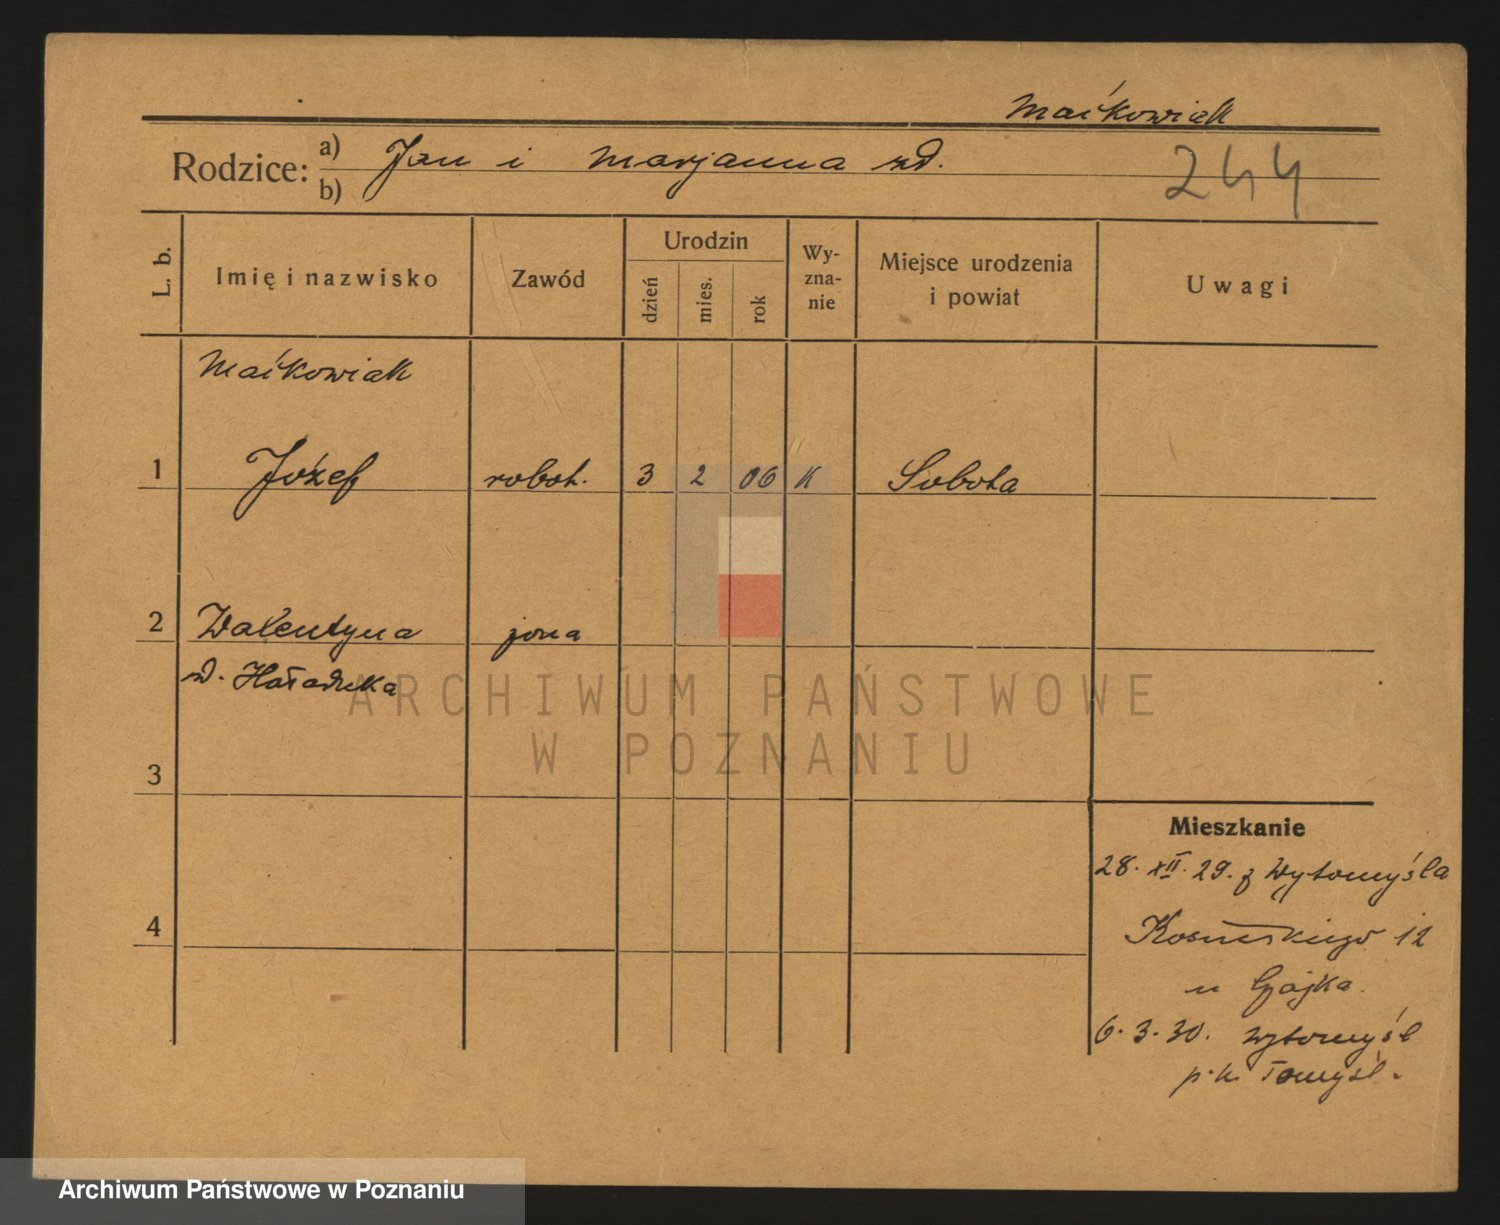 Maćkowiak
Rodzice: a) Jan i Marjanna zd.
b)
244
L. b.
Imię i nazwisko
Zawód
Urodzin
dzień
mies.
rok
Wy-
zna-
nie
Miejsce urodzenia
i powiat
Uwagi
Maćkowiak
1 Józef robot. 3 2 06 K Sobota
2 Walentyna żona
zd.
3
4
Mieszkanie
28. XII. 29. z Wytomyśla
12
u Gajka.
6. 3. 30. Wytomyśl
p. n. Tomyśl.
ARCHIWUM PAŃSTWOWE
W POZNANIU
Archiwum Państwowe w Poznaniu